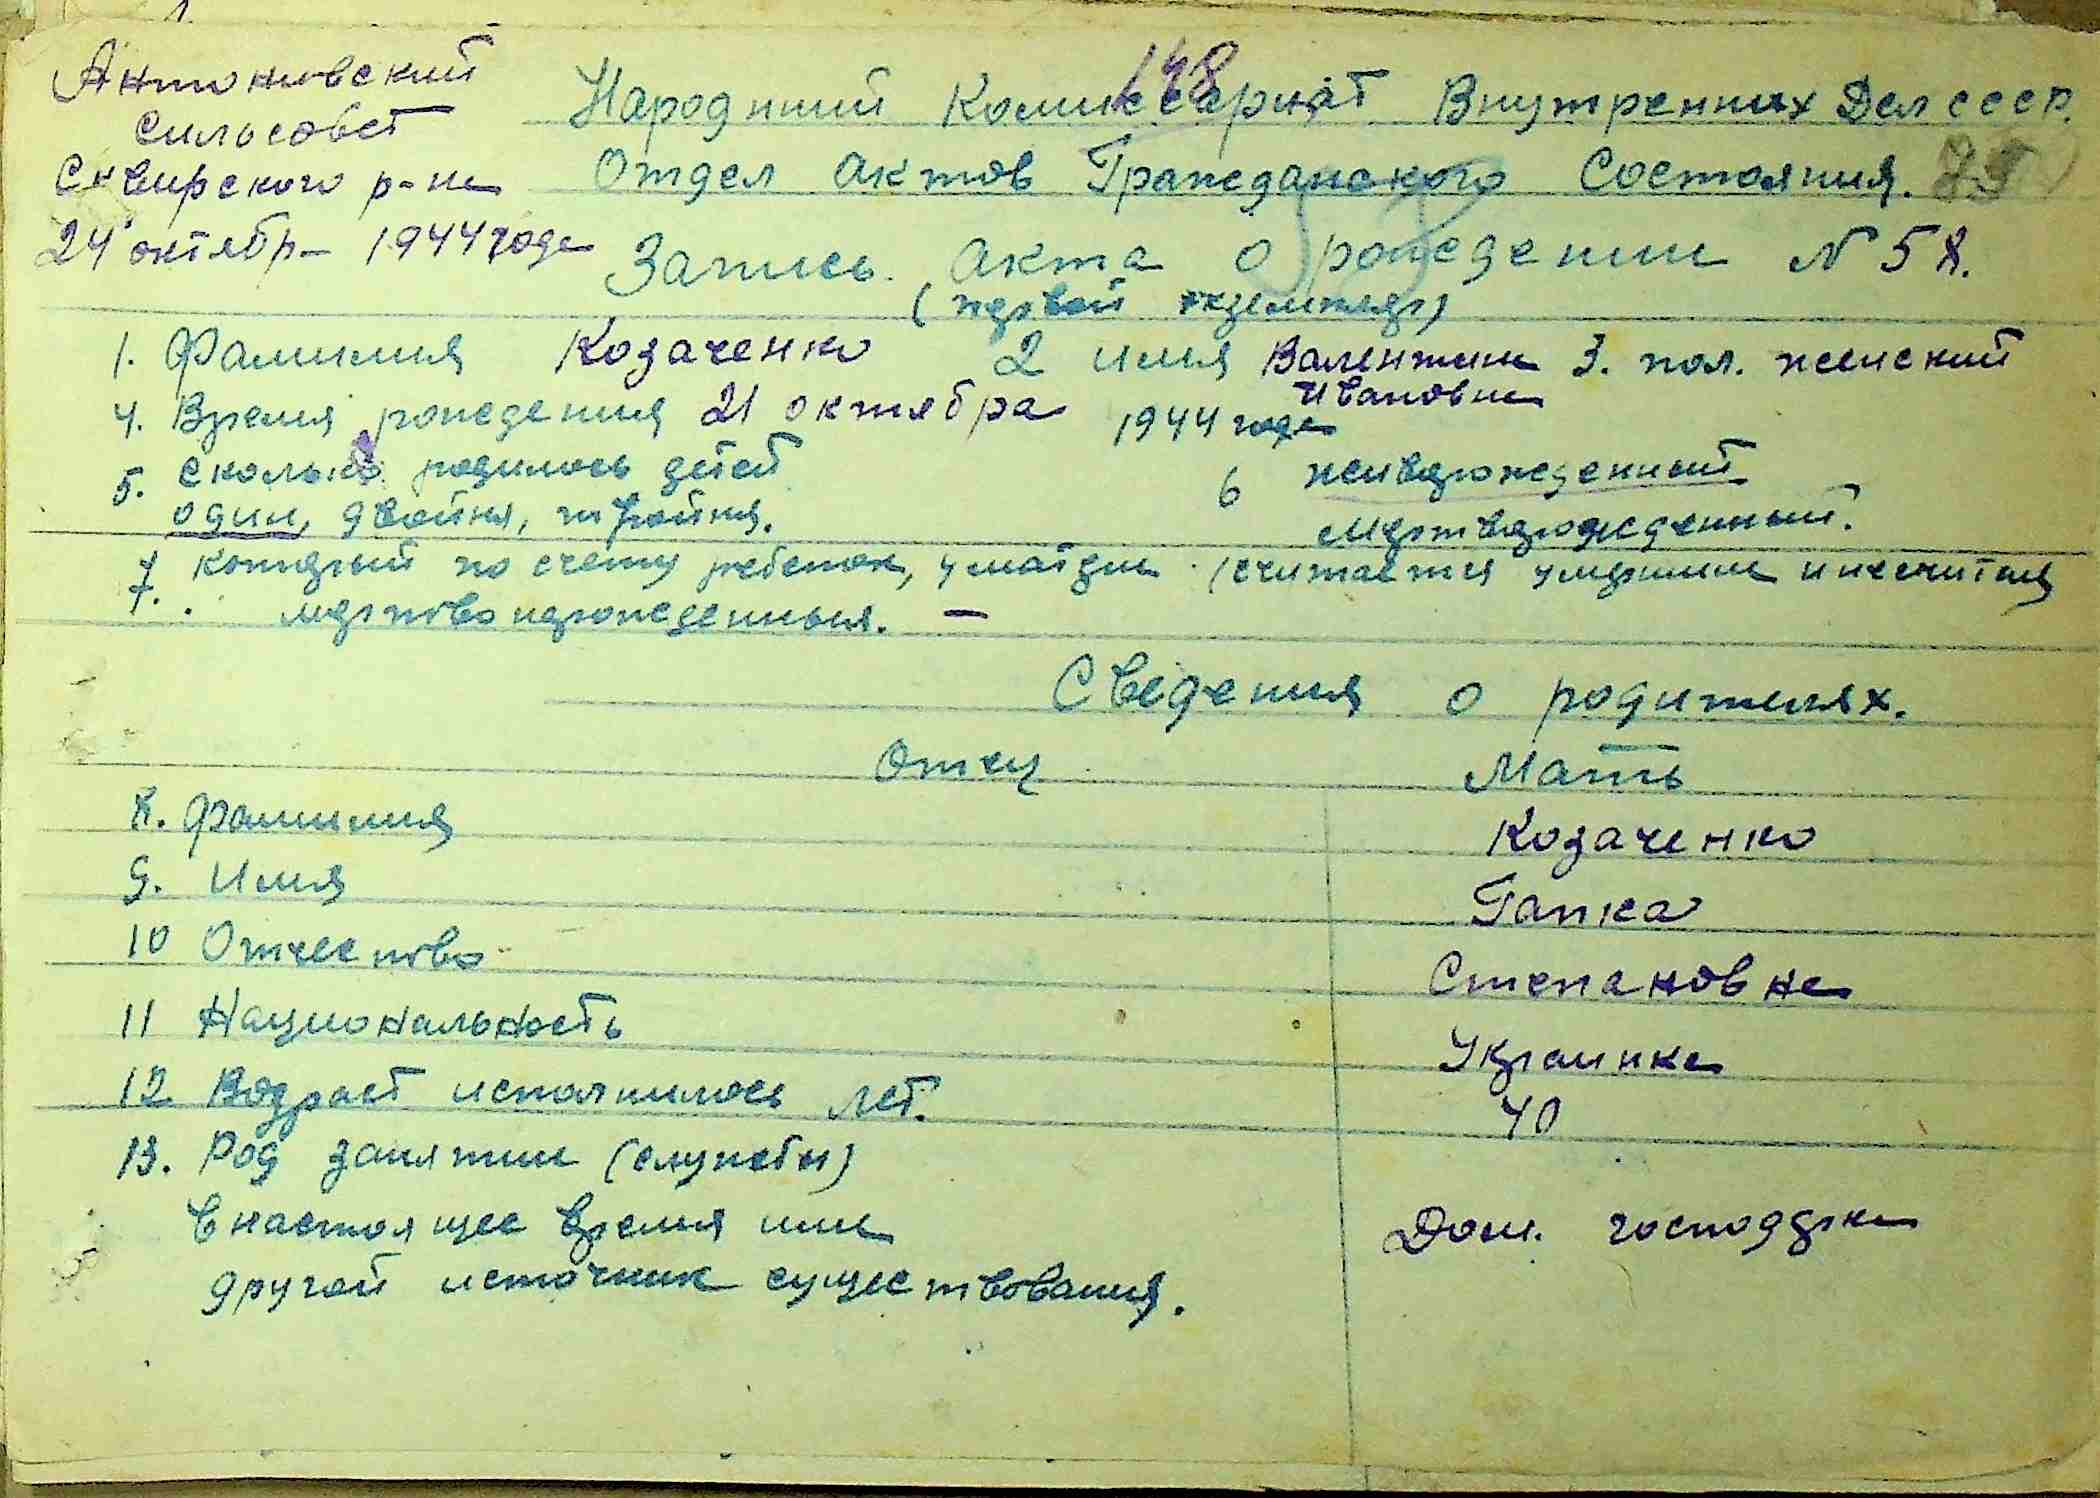 Антоновский
сильсовет
Сквирского р-на
24 октябр- 1944 года
148
Народный Комиссариат Внутренних Дел СССР.
Отдел Актов Гражданского Состояния.
Запись Акта о рождении N 58.
(первой экземпляр)
1. Фамилия Козаченко 2 имя Валентина Ивановна 3. пол. женский
4. Время рождения 21 октября 1944 года
5. Сколько родилось детей
один, двойня, тройня.
6 живорожденный
мертворожденный.
7. который по счету ребенок, у матери (считается умершие и несчитая
мертвонарожденныя. —
Сведения о родителях.
Отец Мать
8. Фамилия Козаченко
9. Имя Гапка
10 Отчество Степановна
11 Национальность Украинка
12 Возраст исполнилось лет. 40
13. Род занятии (службы)
в настоящее время или Дом. господарка
другой источник существования.